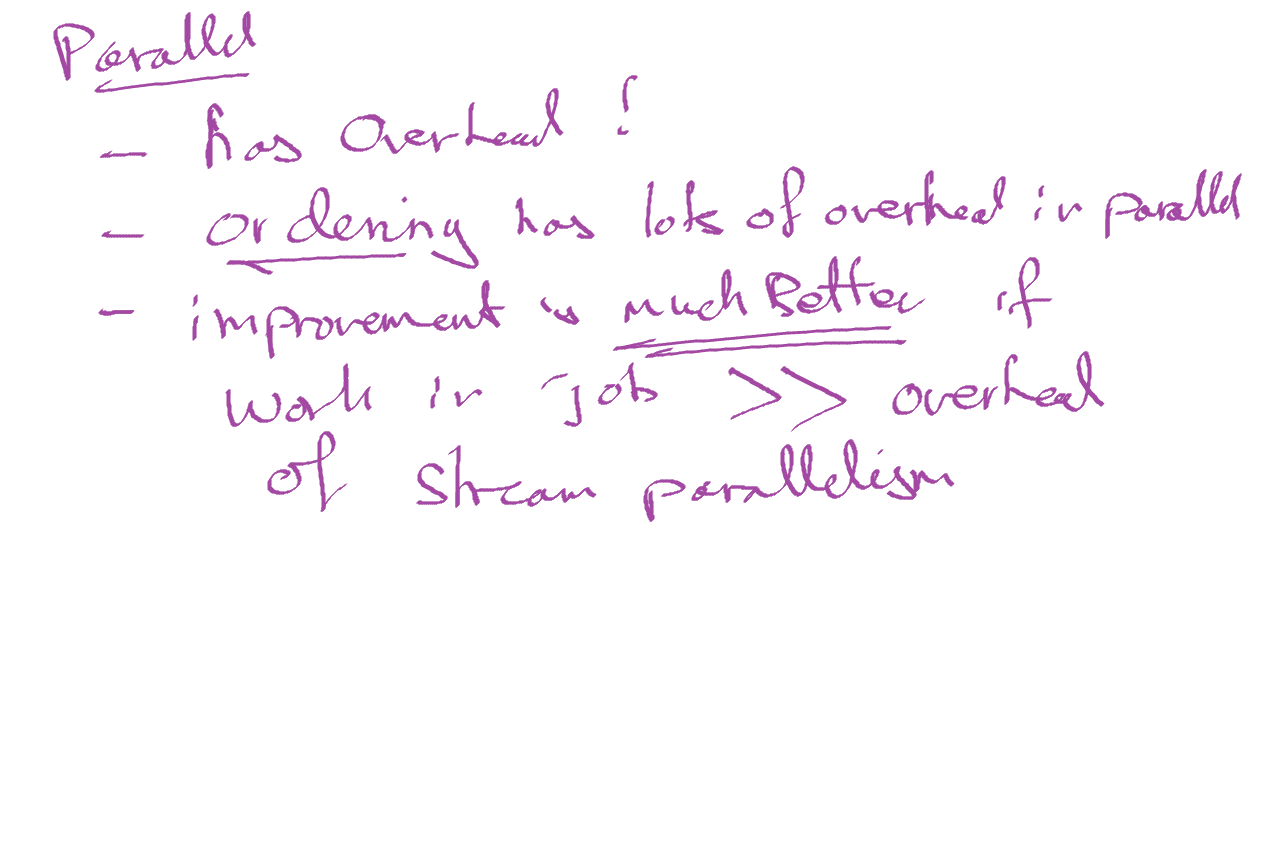 Parallel
- has Overhead!
- ordering has lots of overhead in parallel
- improvement is much Better if
work in job >> overhead
of stream parallelism